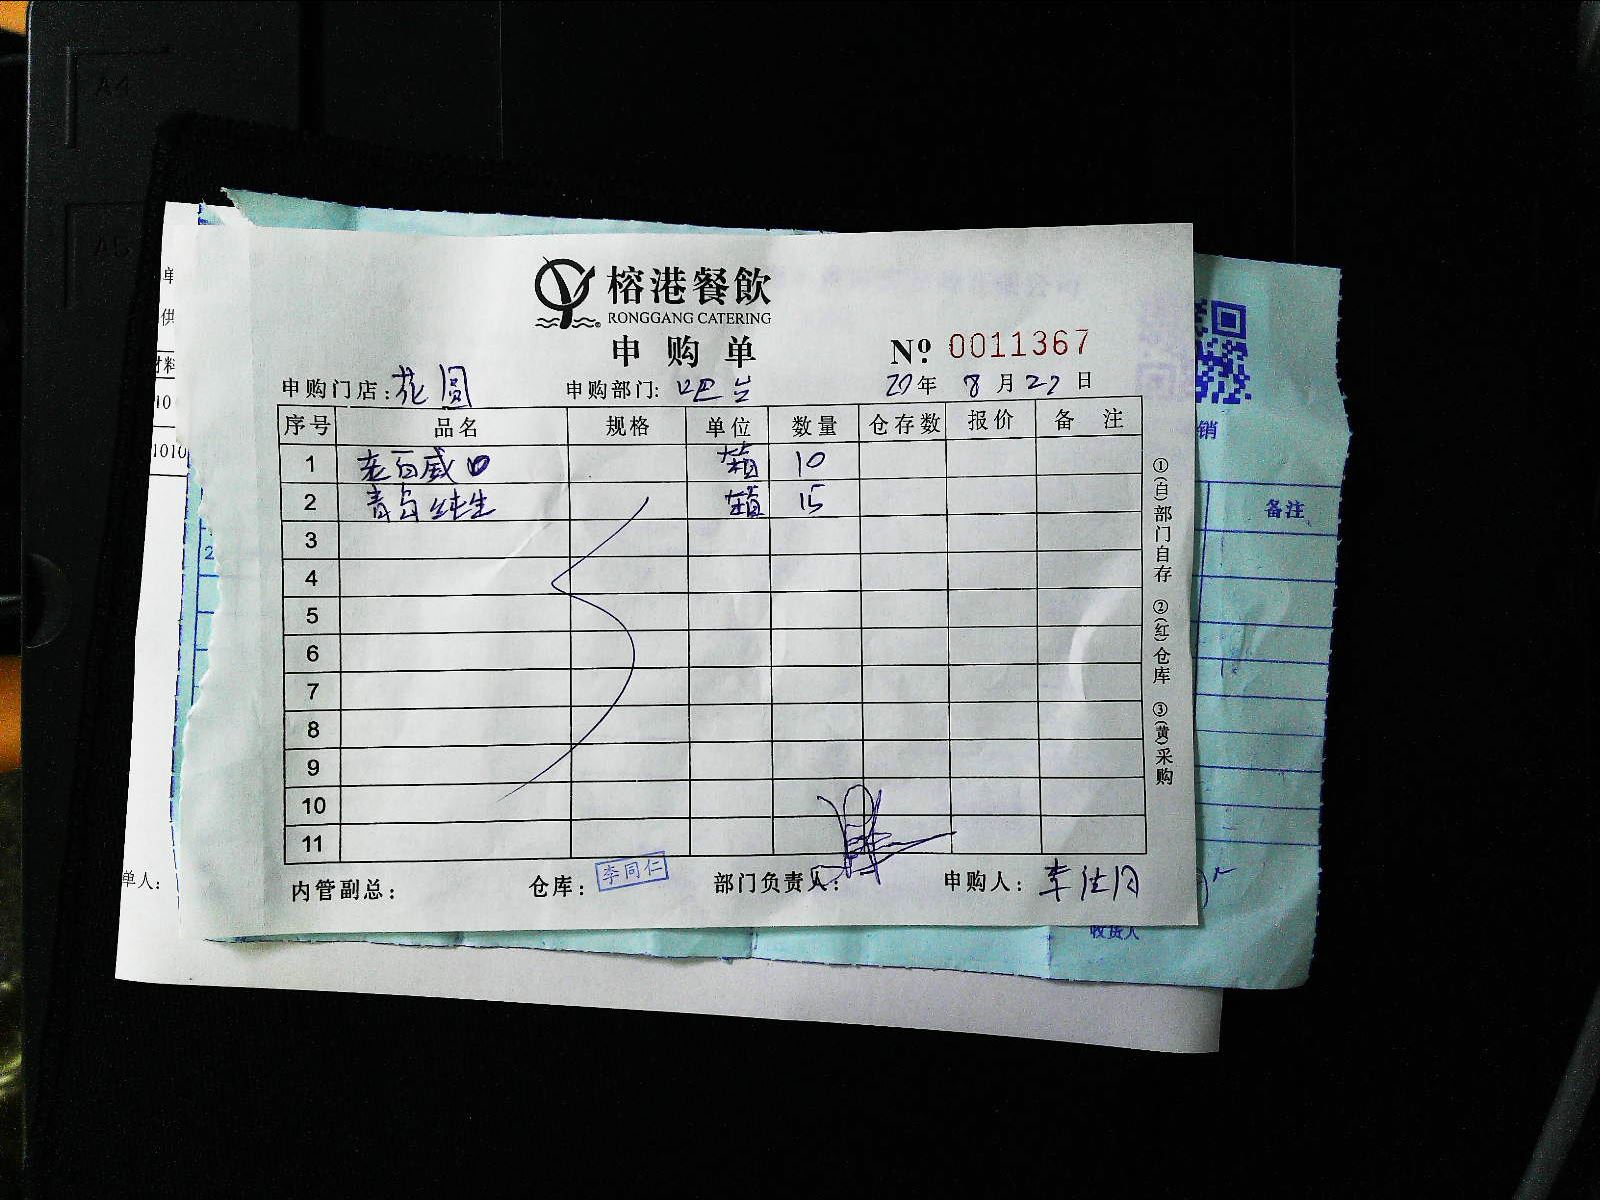 A4
A5
榕港餐飲
RONGGANG CATERING
申购单
Nº: 0011367
申购门店:花圆 申购部门:吧台 年 8 月 27 日
序号 品名 规格 单位 数量 仓存数 报价 备注
1 老百威 箱 10
2 青岛纯生 箱 15
3
4
5
6
7
8
9
10
11
内管副总: 仓库: 李同仁 部门负责人: 申购人: 李仕月
①(白)部门自存 ②(红)仓库 ③(黄)采购
单
供
材料
10
1010
单人:
2
销
备注
收货人